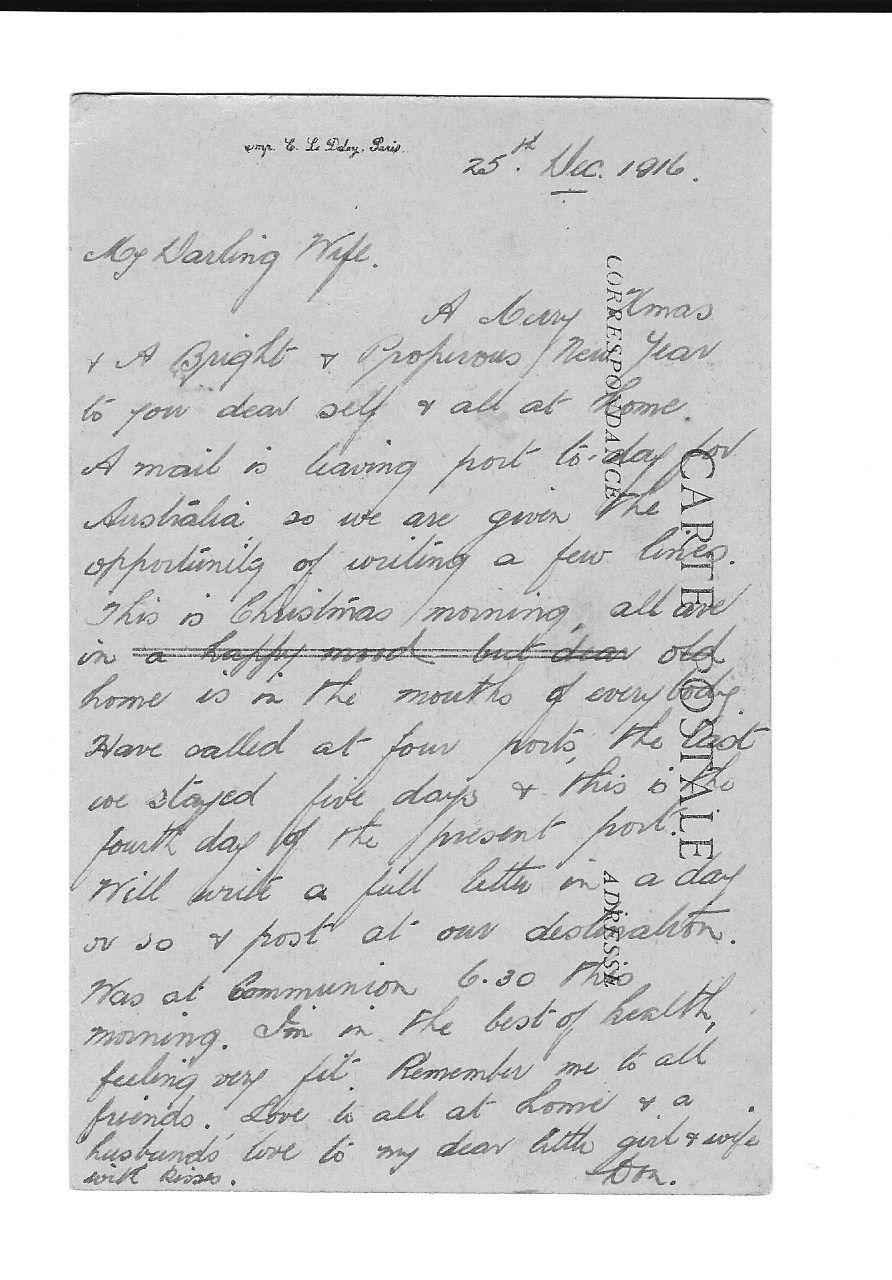 Imp. E. Le Deley, Paris.
25th. Dec. 1916.
My Darling Wife.
A Merry Xmas
& A Bright & Properous New Year
to your dear self & all at home.
A mail is leaving port to-day for
Australia, so we are given the
opportunity of writing a few lines.
This is Christmas morning, all are
in a happy mood but dear old
home is in the mouths of everybody.
Have called at four ports, the last
we stayed five days & this is the
fourth day of the present port.
Will write a full letter in a day
or so & post at our destination.
Was at Communion 6.30 this
morning. I'm in the best of health,
feeling very fit. Remember me to all
friends. Love to all at home & a
husbands love to my dear little girl & wife
with kisses. Don.
CORRESPONDANCE
CARTE POSTALE
ADRESSE